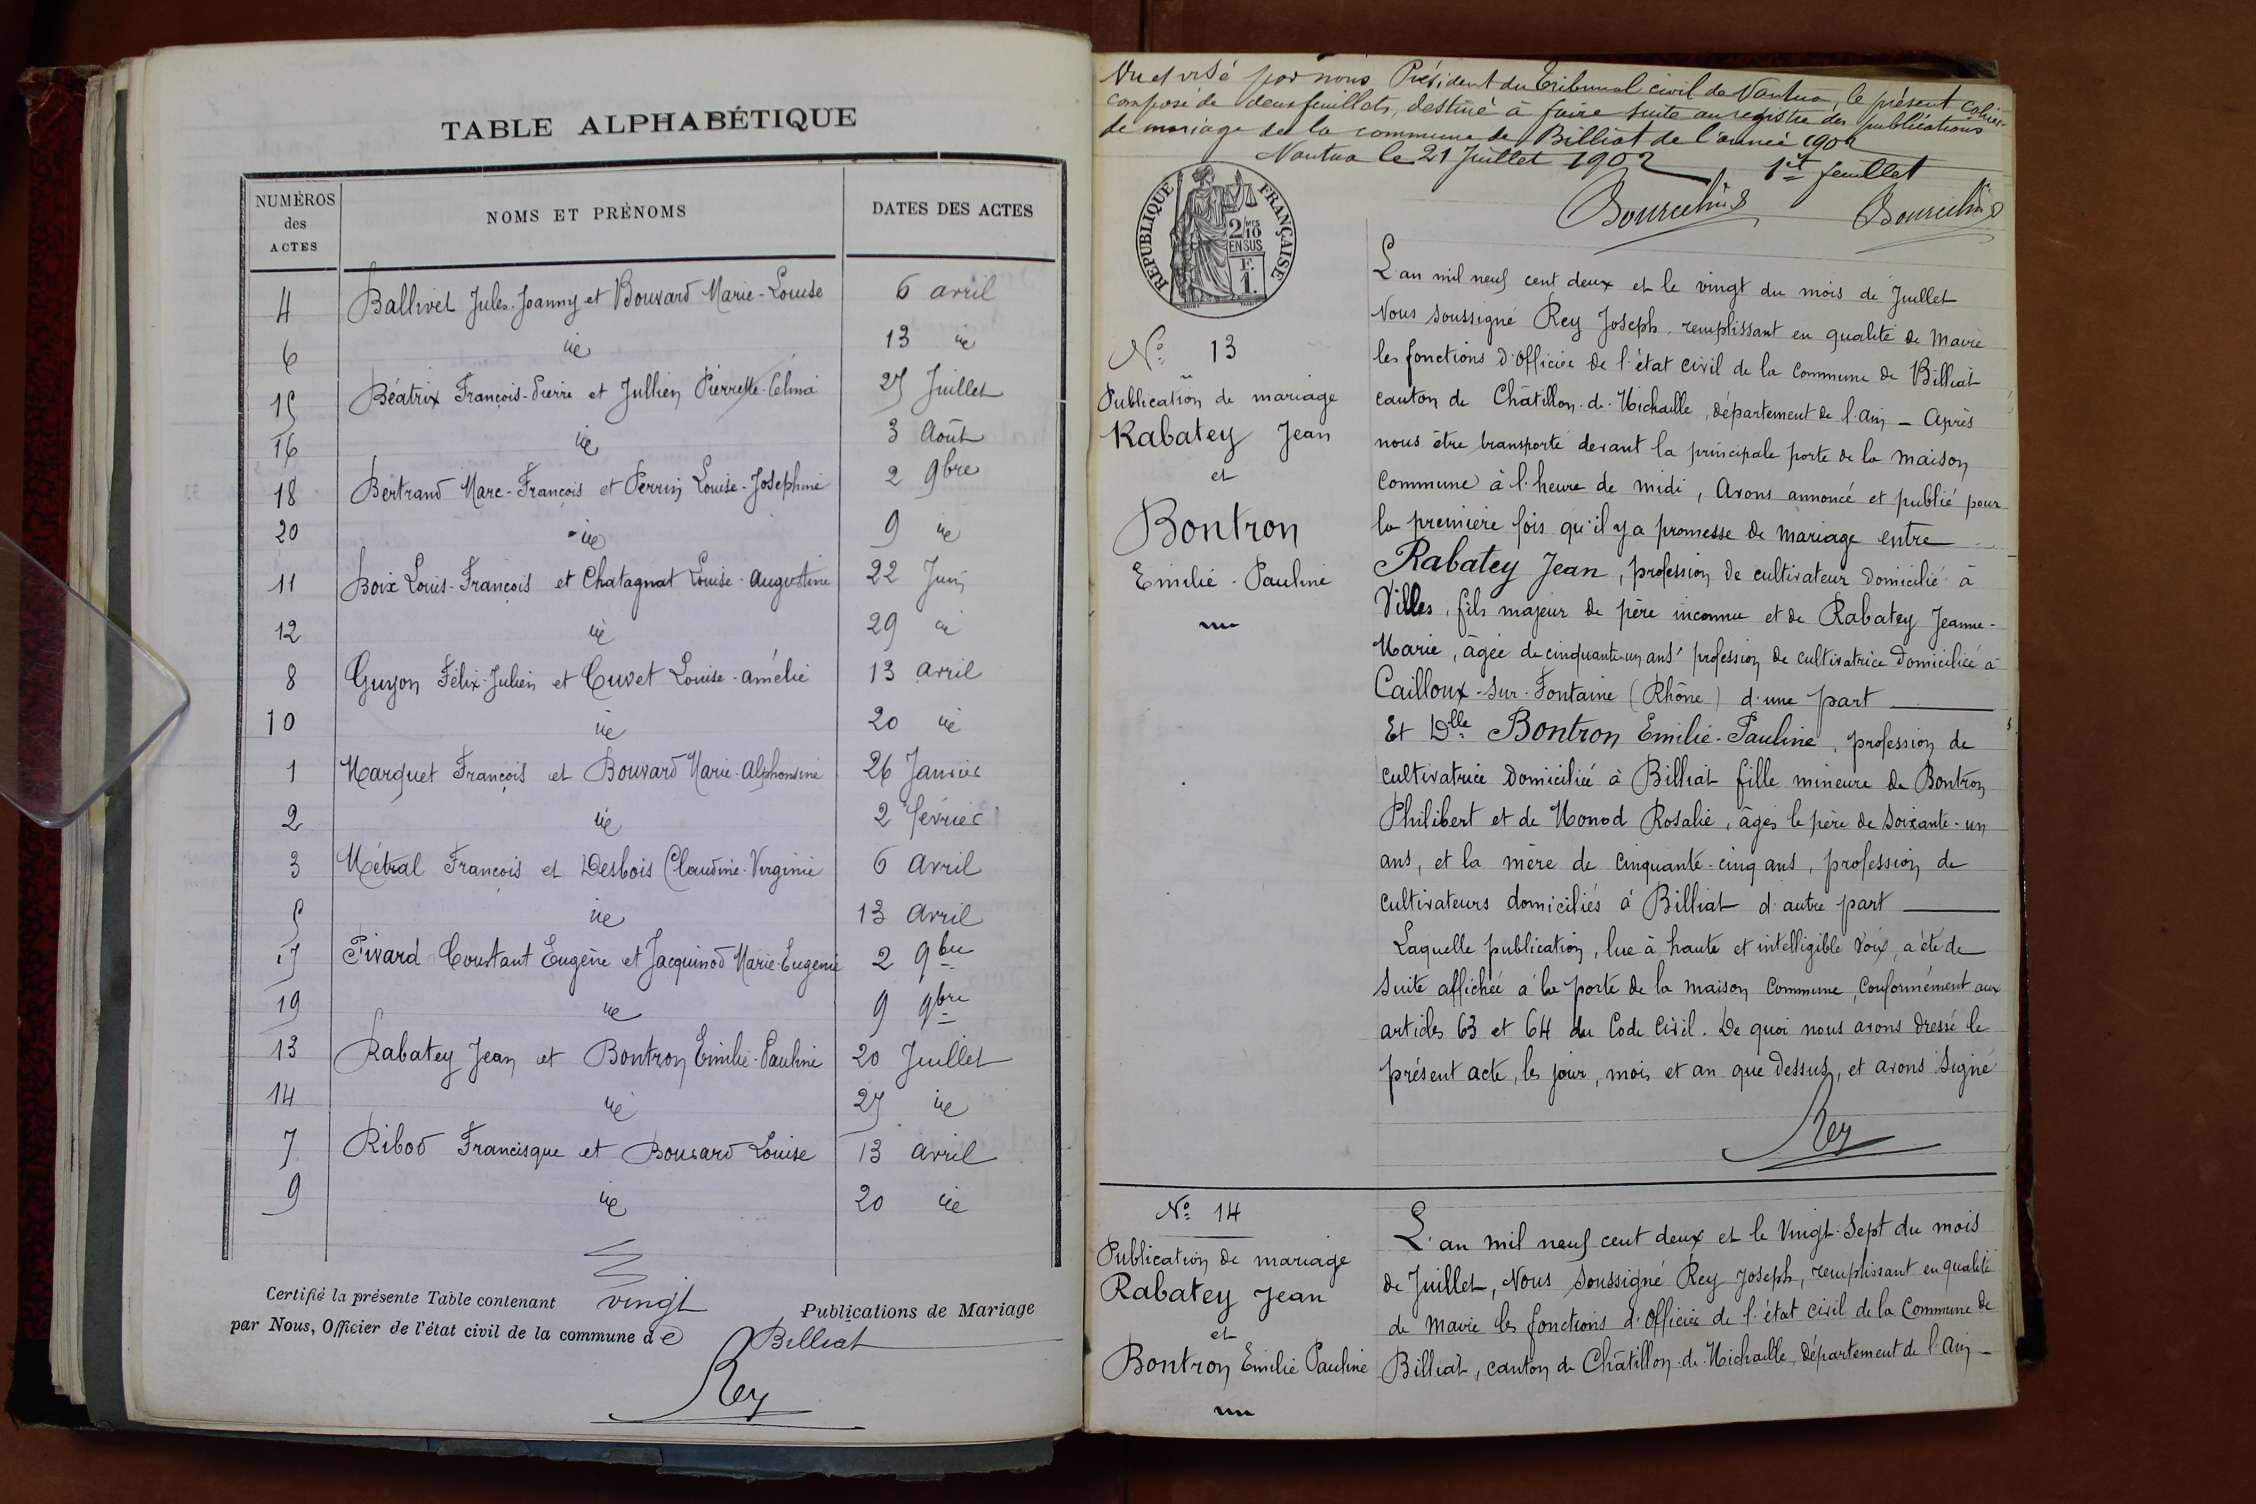 TABLE ALPHABÉTIQUE
NUMÉROS des ACTES
NOMS ET PRÉNOMS
DATES DES ACTES
4 Ballivet Jules-Joanny et Bouvard Marie-Louise 6 avril
6 id 13 id
15 Béatrix François-Pierre et Jullien Pierrette-Célina 27 Juillet
16 id 3 Août
18 Bertrand Marc-François et Perrin Louise-Joséphine 2 9bre
20 id 9 id
11 Boix Louis-François et Chatagnat Louise-Augustine 22 Juin
12 id 29 id
8 Guyon Félix-Julien et Cuvet Louise-Amélie 13 avril
10 id 20 id
1 Marquet François et Bouvard Marie-Alphonsine 26 Janvier
2 id 2 février
3 Métral François et Desbois Claudine-Virginie 6 avril
5 id 13 avril
17 Pivard Constant Eugène et Jacquinod Marie-Eugénie 2 9bre
19 id 9 9bre
13 Rabatey Jean et Bontron Emilie-Pauline 20 Juillet
14 id 27 id
7 Ribod Francisque et Bouvard Louise 13 avril
9 id 20 id
Certifié la présente Table contenant vingt Publications de Mariage
par Nous, Officier de l'état civil de la commune de Billiat
Rey
Vu et visé par nous Président du Tribunal civil de Nantua, le présent cahier
composé de deux feuillets, destiné à faire suite au registre des publications
de mariage de la commune de Billiat de l'année 1902
Nantua le 21 Juillet 1902 1er feuillet
RÉPUBLIQUE FRANÇAISE
2/10 MES
EN SUS
F.
1.
L'an mil neuf cent deux et le vingt du mois de Juillet
Nous soussigné Rey Joseph remplissant en qualité de Maire
les fonctions d'Officier de l'état civil de la Commune de Billiat
canton de Châtillon-de-Michaille, département de l'Ain – Après
nous être transporté devant la principale porte de la maison
Commune à l'heure de midi, Avons annoncé et publié pour
la première fois qu'il y a promesse de mariage entre
Rabatey Jean, profession de cultivateur domicilié à
Villes, fils majeur de père inconnu et de Rabatey Jeanne-
Marie, âgée de cinquante-un ans, profession de cultivatrice domiciliée à
Cailloux-sur-Fontaine (Rhône) d'une part
Et Dlle Bontron Emilie-Pauline, profession de
cultivatrice domiciliée à Billiat fille mineure de Bontron
Philibert et de Monod Rosalie, âgés le père de soixante-un
ans, et la mère de cinquante-cinq ans, profession de
cultivateurs domiciliés à Billiat d'autre part
Laquelle publication, lue à haute et intelligible voix, a été de
suite affichée à la porte de la maison Commune, conformément aux
articles 63 et 64 du Code Civil. De quoi nous avons dressé le
présent acte, les jour, mois et an que dessus, et avons signé
Rey
No 13
Publication de mariage
Rabatey Jean
et
Bontron
Emilie-Pauline
No 14
Publication de mariage
Rabatey Jean
et
Bontron Emilie Pauline
L'an mil neuf cent deux et le Vingt-Sept du mois
de Juillet, Nous soussigné Rey Joseph, remplissant en qualité
de Maire les fonctions d'Officier de l'état civil de la Commune de
Billiat, canton de Châtillon-de-Michaille, département de l'Ain –